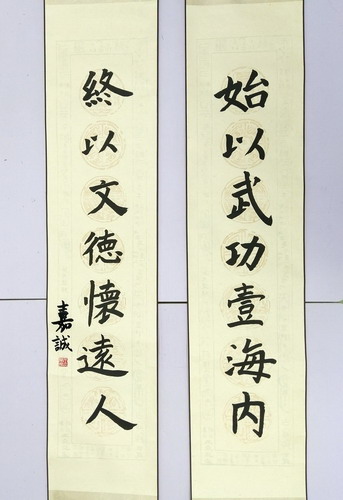 始以武功壹海内
終以文德懷遠人
嘉誠